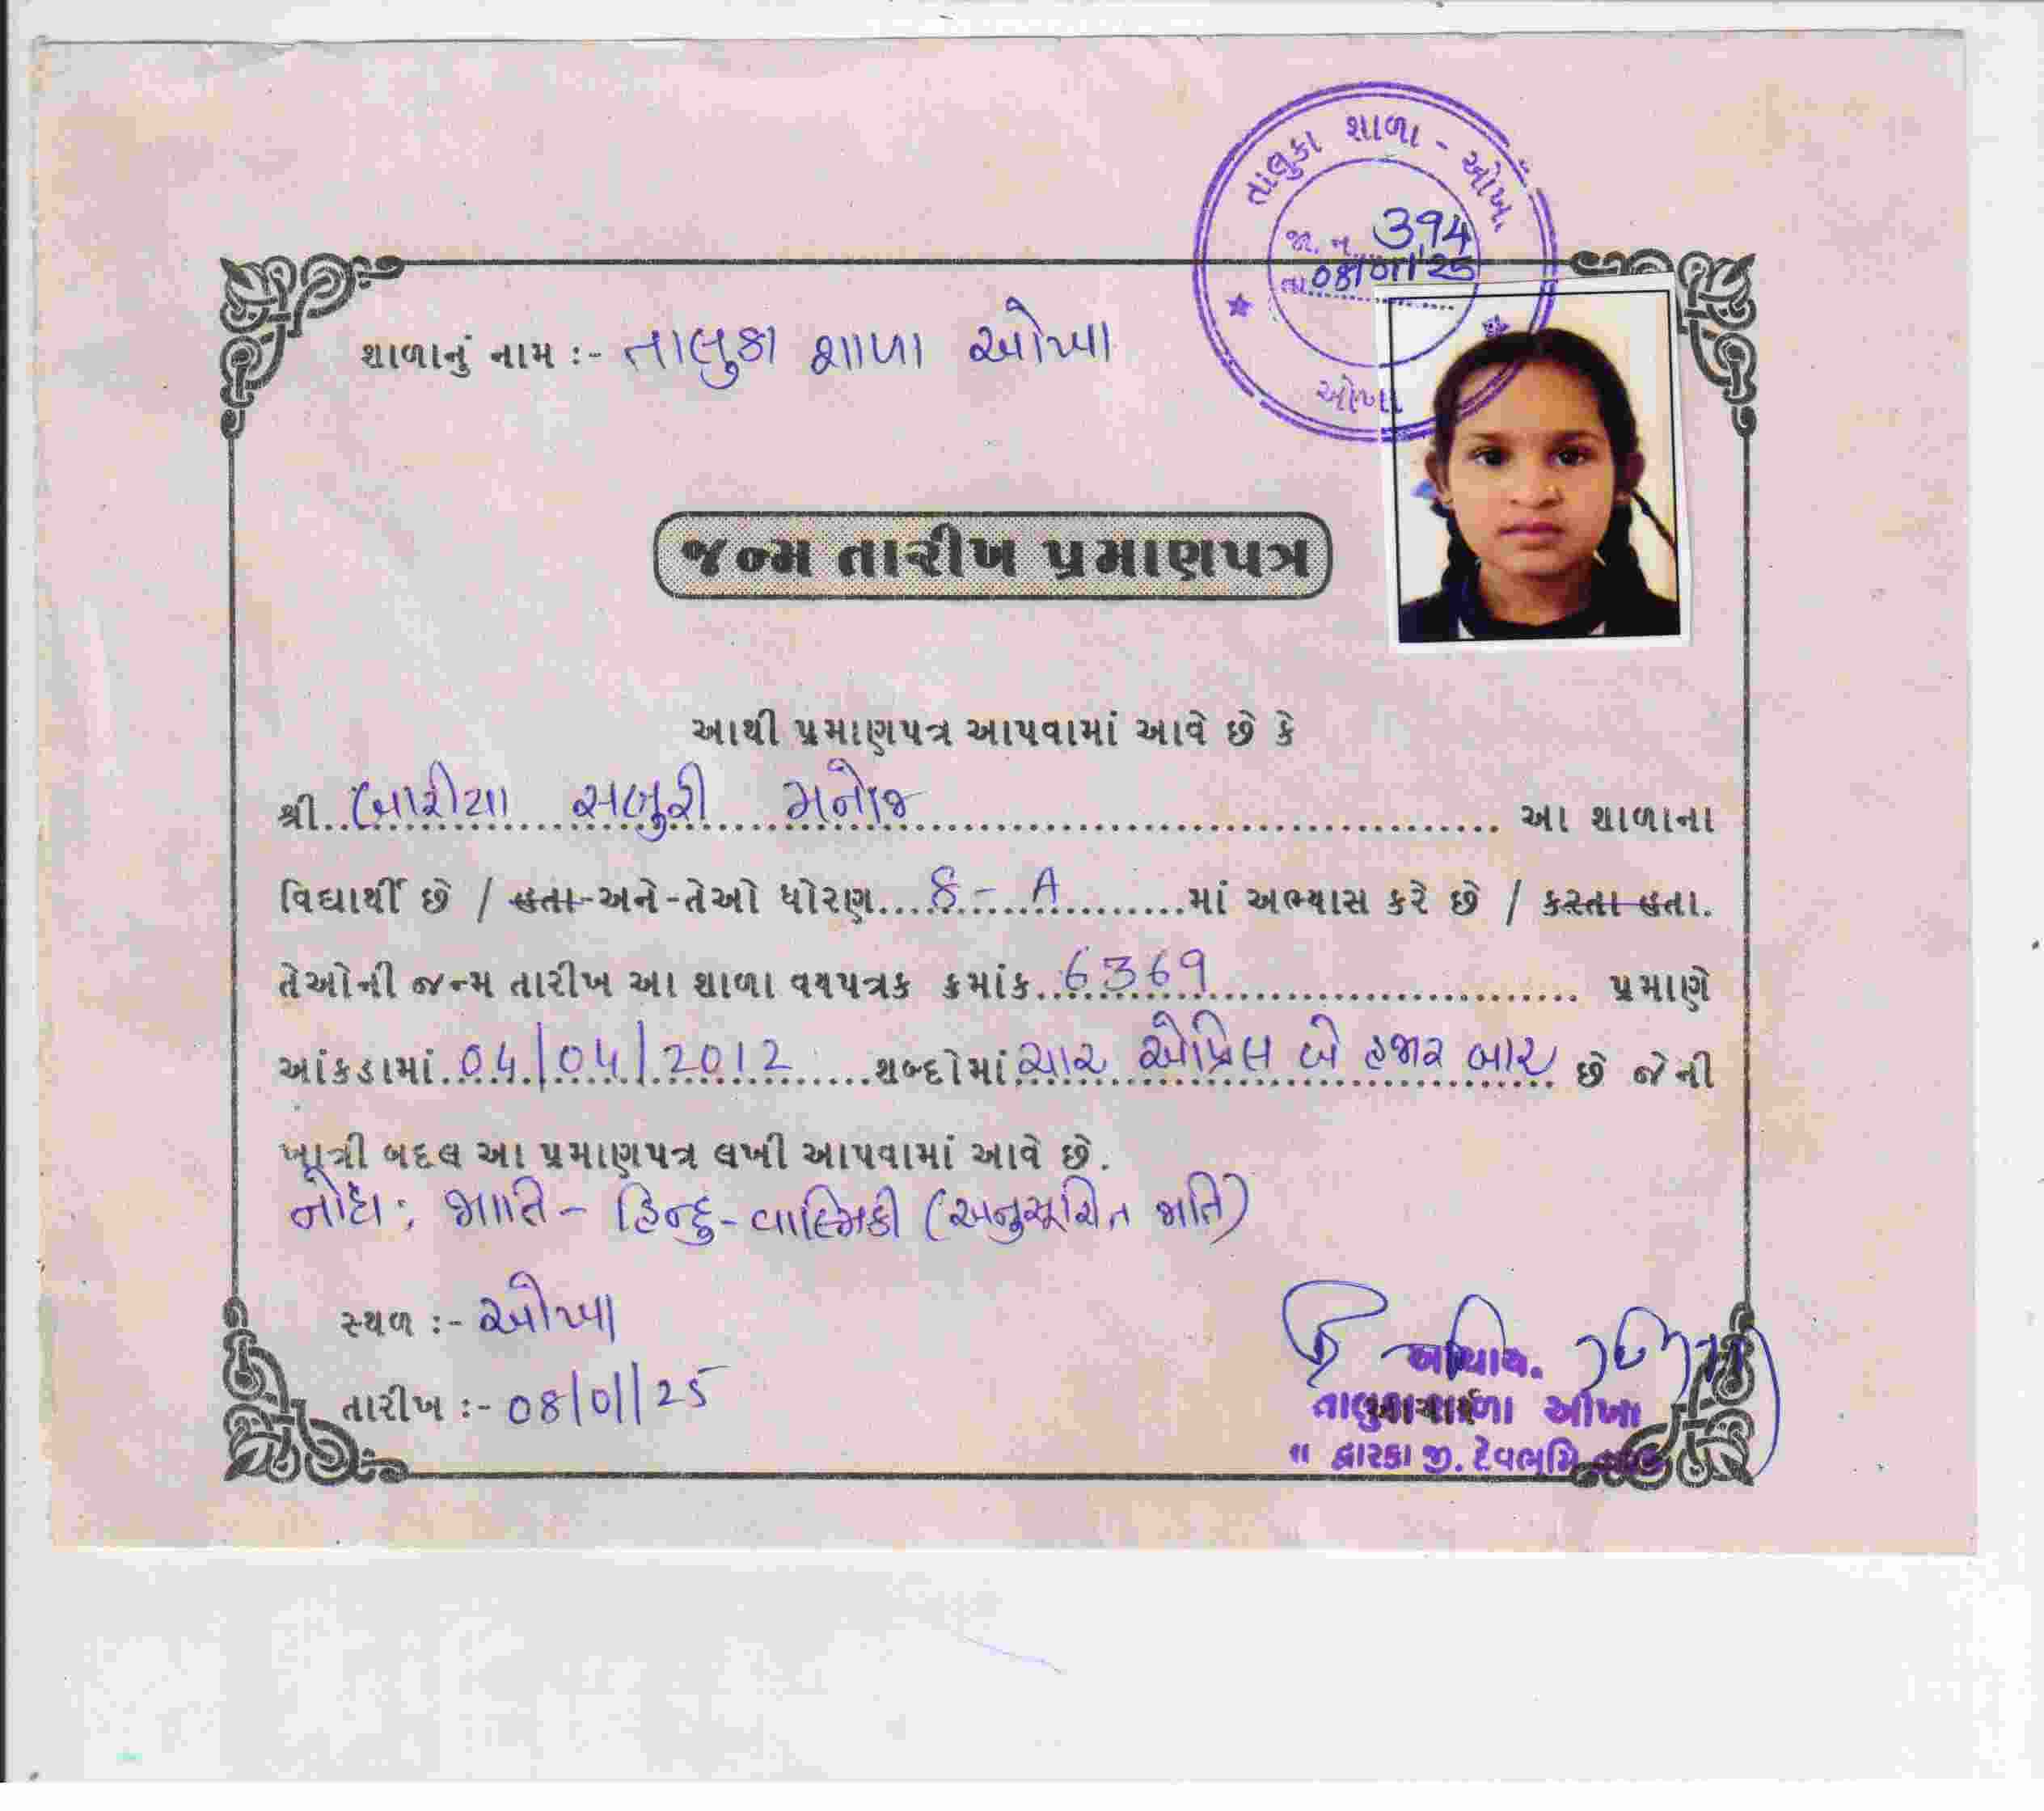 તાલુકા શાળા - ઓખા
જા. નં. 394
તા. 08/01/25
ઓખા
શાળાનું નામ :- તાલુકા શાળા ઓખા
જન્મ તારીખ પ્રમાણપત્ર
આથી પ્રમાણપત્ર આપવામાં આવે છે કે
શ્રી બારીયા સબુરી મનોજ આ શાળાના
વિદ્યાર્થી છે / હતા અને તેઓ ધોરણ 8 - A માં અભ્યાસ કરે છે / કરતા હતા.
તેઓની જન્મ તારીખ આ શાળા વયપત્રક ક્રમાંક 6369 પ્રમાણે
આંકડામાં 04/04/2012 શબ્દોમાં ચાર એપ્રિલ બે હજાર બાર છે જેની
ખાત્રી બદલ આ પ્રમાણપત્ર લખી આપવામાં આવે છે.
નોંધ: જાતિ - હિન્દુ - વાલ્મિકી (અનુસૂચિત જાતિ)
સ્થળ :- ઓખા
તારીખ :- 08/01/25
આચાર્ય
તાલુકા શાળા ઓખા
દ્વારકા જી. દેવભૂમિ